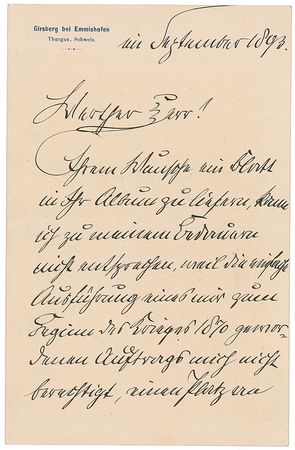 Girsberg bei Emmishofen
Thurgau, Schweiz.
im September 1893.
Werther Herr!
Ihrem Wunsche ein Blatt
in Ihr Album zu liefern, kann
ich zu meinem Bedauern
nicht entsprechen, weil die einfache
Ausführung eines mir zum
Beginn des Krieges 1870 gewor-
denen Auftrags mich nicht
berechtigt, einen Platz an